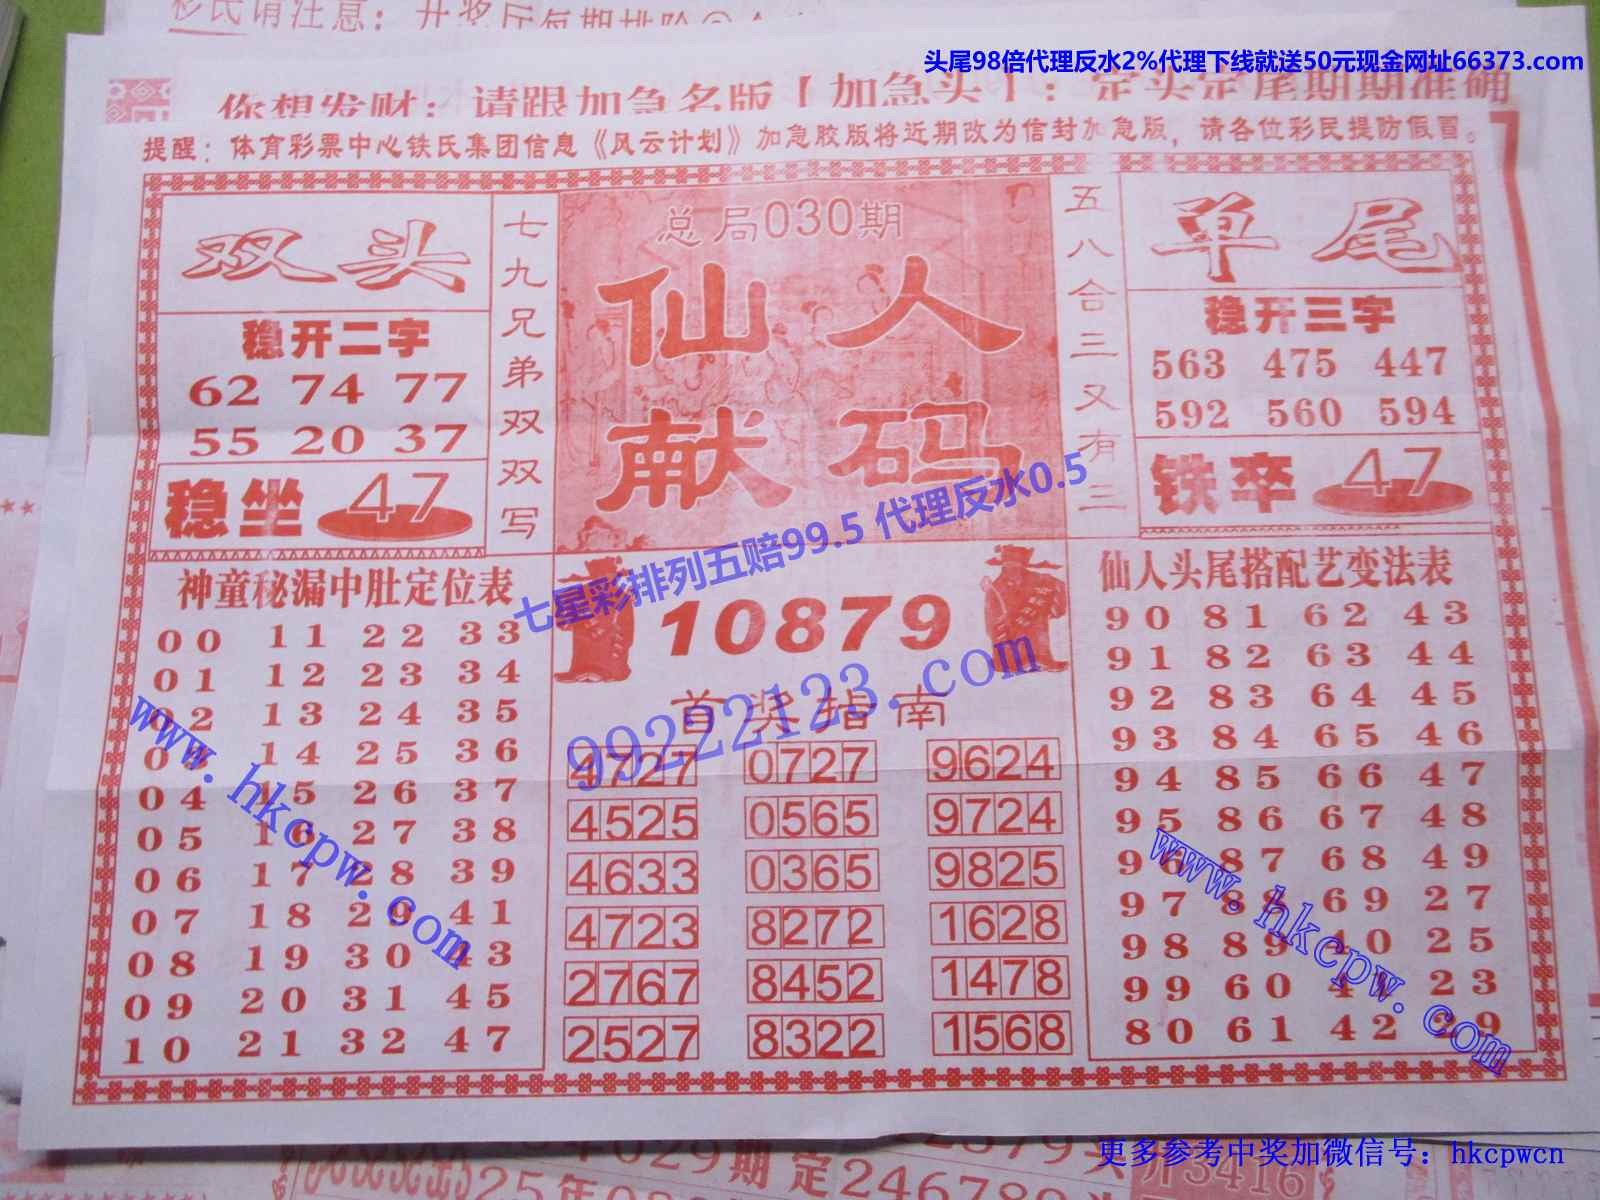 移民请注意：开奖厅每期排险
头尾98倍代理反水2%代理下线就送50元现金网址66373.com
你想发财：请跟加急名版【加急头】：定头定尾期期准确
提醒：体育彩票中心铁氏集团信息《风云计划》加急胶版将近期改为信封加急版，请各位彩民提防假冒。
双头
稳开二字
62 74 77
55 20 37
稳坐 47
七九兄弟双双写
总局030期
仙人
献码
五八合三又有三
单尾
稳开三字
563 475 447
592 560 594
铁卒 47
七星彩排列五赔99.5 代理反水0.5
99222123.com
神童秘漏中肚定位表
00 11 22 33
01 12 23 34
02 13 24 35
03 14 25 36
04 15 26 37
05 16 27 38
06 17 28 39
07 18 29 41
08 19 30 43
09 20 31 45
10 21 32 47
www.hkcpw.com
10879
首奖指南
4727 0727 9624
4525 0565 9724
4633 0365 9825
4723 8272 1628
2767 8452 1478
2527 8322 1568
仙人头尾搭配艺变法表
90 81 62 43
91 82 63 44
92 83 64 45
93 84 65 46
94 85 66 47
95 86 67 48
96 87 68 49
97 88 69 27
98 89 40 25
99 60 41 23
80 61 42 29
www.hkcpw.com
更多参考中奖加微信号：hkcpwcn
029期定246789头
3416